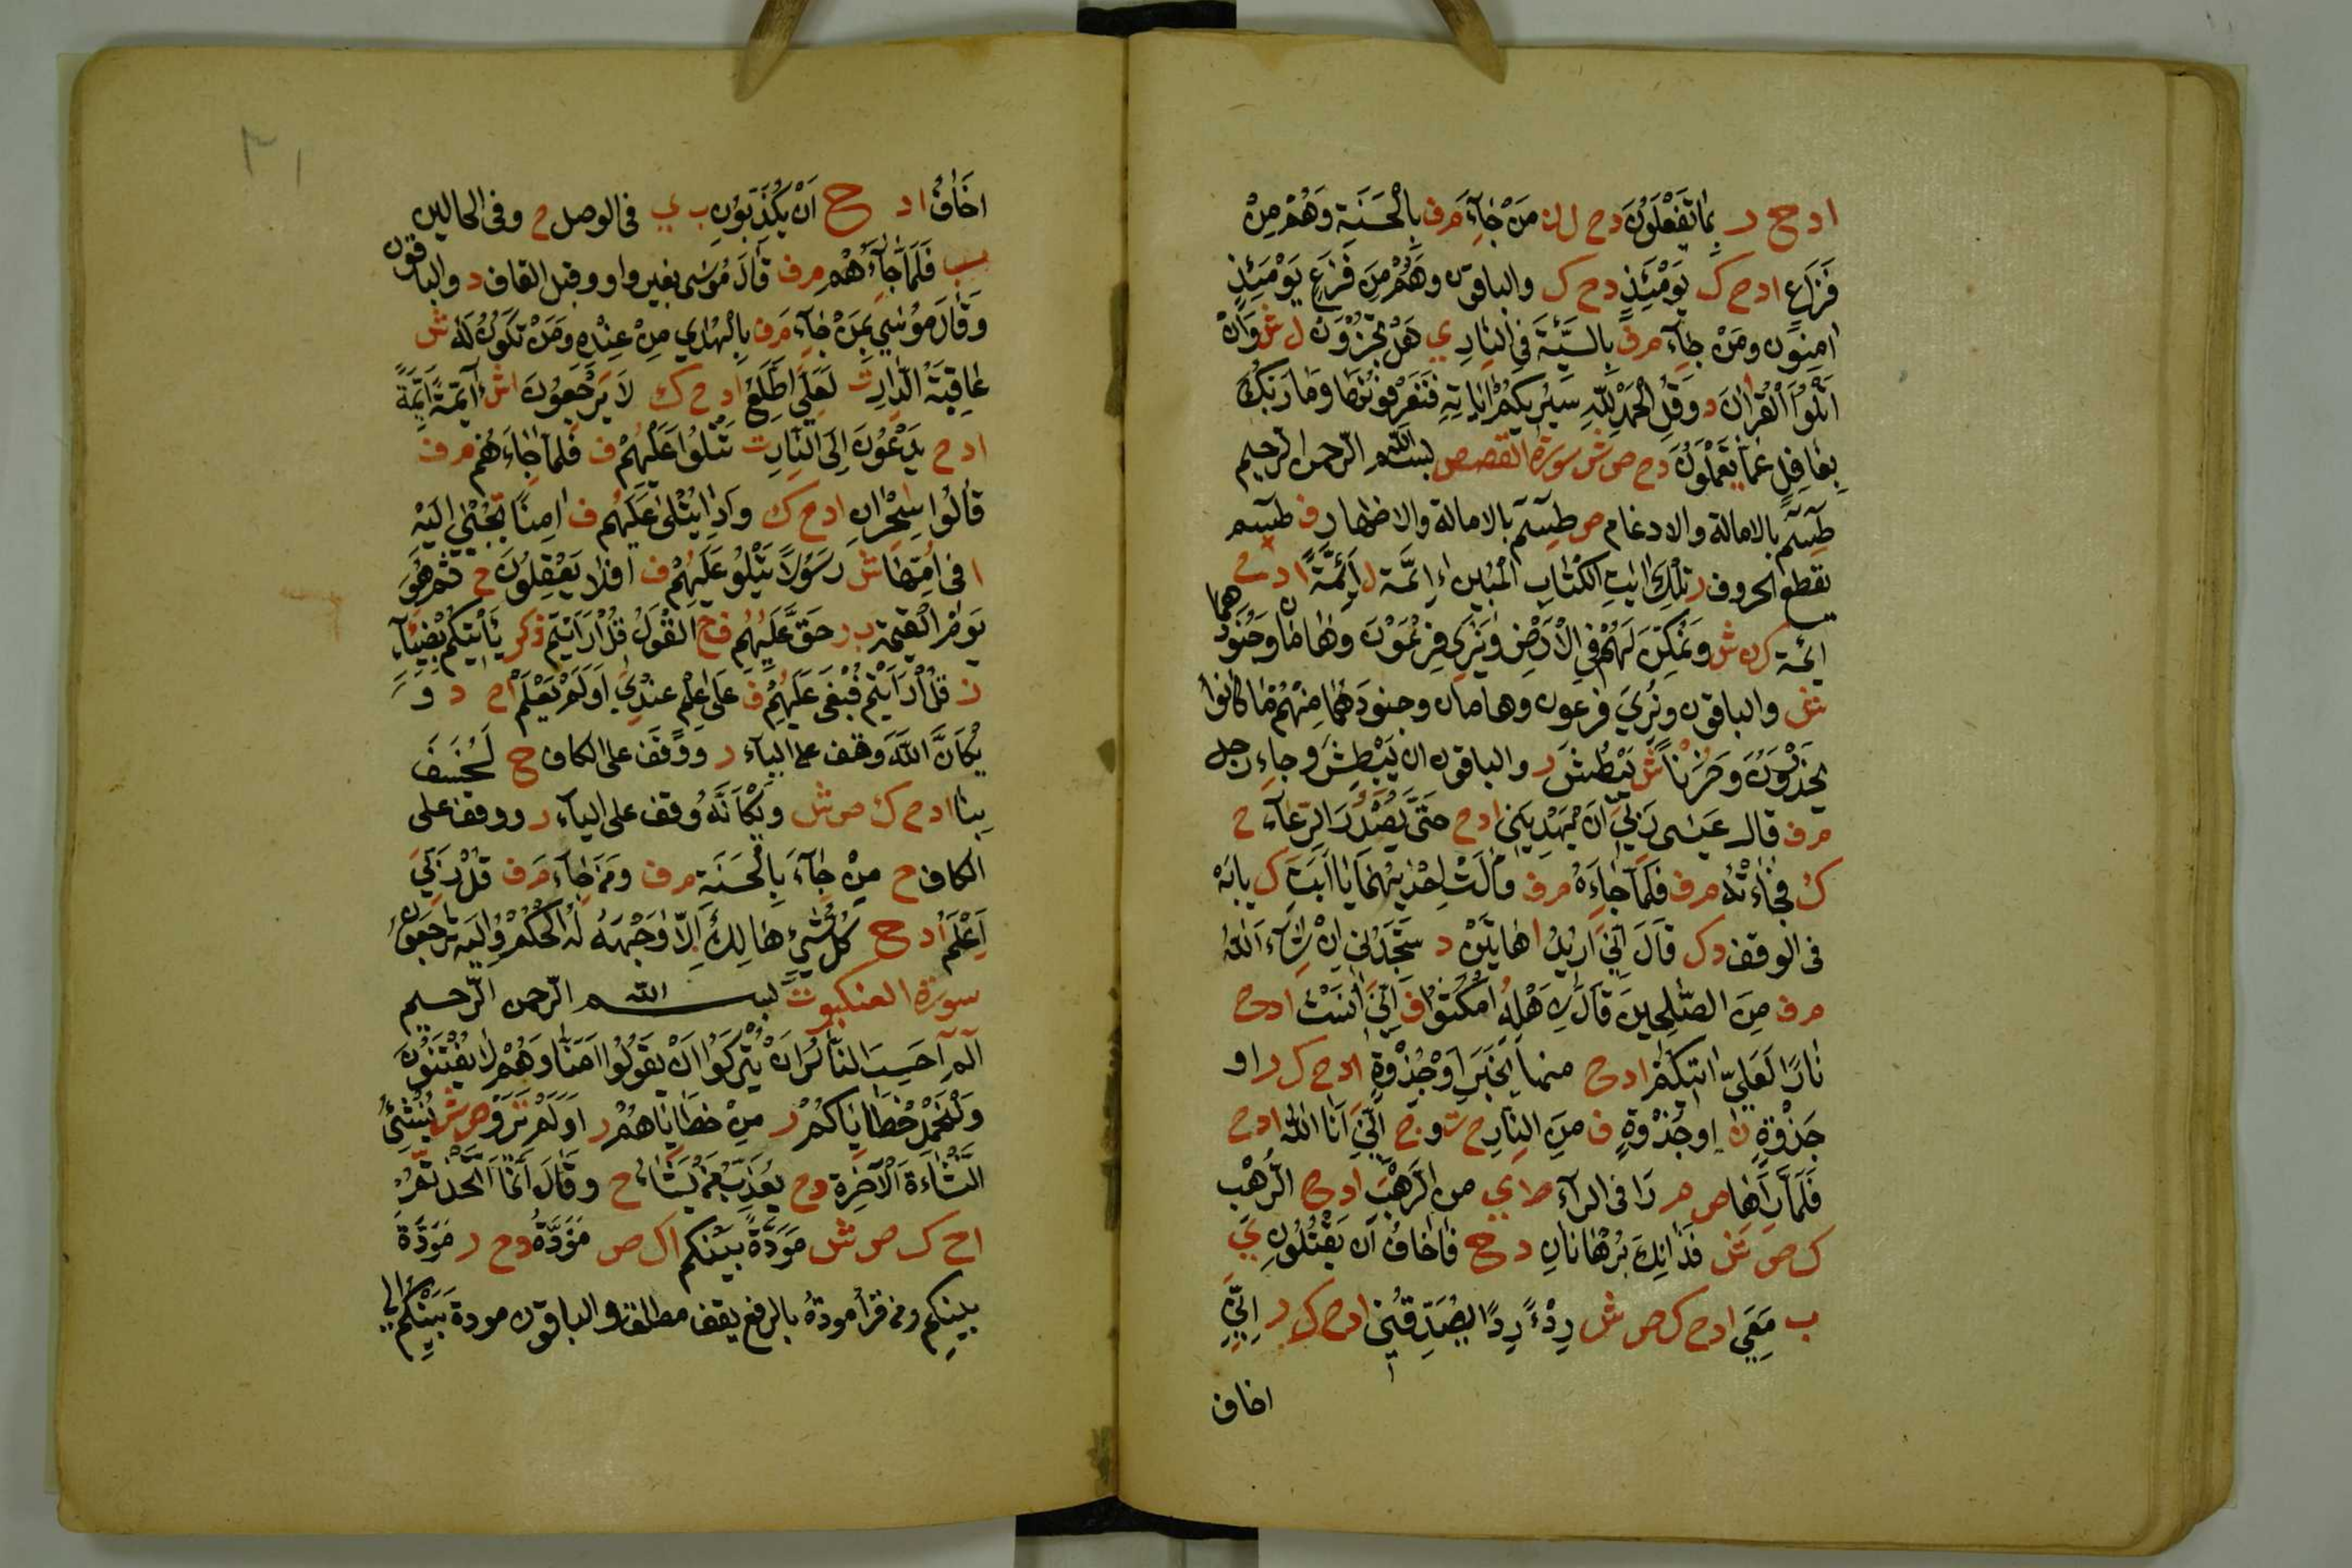 ا د ح ح ر بِمَا تَفْعَلُونَ د ح ل ن مَنْ جَاءَ م ف بِالْحَسَنَةِ وَهُمْ مِنْ
فَزَعِ ا د ح ك يَوْمَئِذٍ د ح ك والباقون وَهُمْ مِنْ فَزَعٍ يَوْمَئِذٍ
اٰمِنُونَ ومَنْ جَاءَ م ف بِالسَّيِّئَةِ فِي النَّارِ ي هَلْ تُجْزَوْنَ ل ش وَاَنْ
اَتْلُوَا الْقُرْانَ د وَقُلِ الْحَمْدُ لِلّٰهِ سَيُرِيكُمْ اٰيَاتِهِ فَتَعْرِفُونَهَا وَمَا رَبُّكَ
بِغَافِلٍ عَمَّا يَعْمَلُونَ د ح ص ش سورة القصص بسم الله الرحمن الرحيم
طٓسٓمٓ بالامالة والادغام ص طٓسٓمٓ بالامالة والاظهار ف طٓسٓم
بقطع الحروف ر تِلْكَ اٰيَاتُ الْكِتَابِ الْمُبِينِ اَئِمَّة ل اَئِمَّةً ا د ح
ائمة ك ن ش وَنُمَكِّنَ لَهُمْ فِي الْاَرْضِ وَيَرٰى فِرْعَوْنُ وَهَامَانُ وَجُنُودُهُمَا
ش والباقون ونُرِيَ فرعون وهامان وجنودَهُمَا مِنْهُمْ مَا كَانُوا
يَحْذَرُونَ وَحُزْنًا ش يَبْطُشَ ر والباقون ان يَبْطِشَ وجاء رجل
م ف قال عَسٰى رَبِّيَ اَنْ يَهْدِيَنِي ا د ح حَتّٰى يَصْدُرَ الرِّعَاءُ ح
ك فَجَاءَتْهُ م ف فَلَمَّا جَاءَهُ م ف قَالَتْ اِحْدٰيهُمَا يَا اَبَتَ ك يابَهْ
فى الوقف د ك قَالَ اِنِّيَ اُرِيدُ ا هَاتَيْنِّ د سَتَجِدُنِيَ اِنْ شَاءَ اللّٰهُ
م ف مِنَ الصّٰلِحِينَ قَالَ لِاَهْلِهُ امْكُثُوا ف اِنِّيَ اٰنَسْتُ ا د ح
نَارًا لَعَلِّيَ اٰتِيكُمْ ا د ح ك منها بِخَبَرٍ اَوْ جِذْوَةٍ ا د ح ك ر او
جَذْوَةٍ ن او جُذْوَةٍ ف مِنَ النَّارِ ح ت و ج اِنِّيَ اَنَا اللّٰهُ ا د ح
فَلَمَّا رَاٰهَا ص م رَا فى الراء ط ي من الرَّهَبِ ا د ح الرُّهْبِ
ك ص ش فَذَانِّكَ بُرْهَانَانِ د ح ح فَاَخَافُ اَنْ يَقْتُلُونِ ي
ب مَعِيَ ا د ح ك ص ش رِدْءً رِدًا يُصَدِّقْنِي ا د ح ك ر اِنِّيَ
اخاف
٣١
اَخَافُ ا د ح اَنْ يُكَذِّبُونِ ب ي فى الوصل ح وفى الحالين
ب فَلَمَّا جَاءَهُمْ م ف قَالَ مُوسٰى بغير واو وقبل القاف د والباقون
وَقَالَ مُوسٰى بِمَنْ جَاءَ م ف بِالْهُدٰي مِنْ عِنْدِهِ وَمَنْ يَكُونُ لَهُ ش
عَاقِبَةُ الدَّارِ ت لَعَلِّيَ اَطَّلِعُ ا د ح ك لَا يَرْجِعُونَ ا ش اَئِمَّةً اَيِمَّةً
ا د ح يَدْعُونَ اِلَى النَّارِ ت تَتْلُوا عَلَيْهُمْ ف فَلَمَّا جَاءَهُمْ م ف
قَالُوا سَاحِرَانِ ا د ح ك وَاِذَا يُتْلٰى عَلَيْهُمْ ف اٰمِنًا تُجْبٰى اِلَيْهِ
ا فى اِمِّهَا ش رَسُولًا يَتْلُو عَلَيْهُمْ ف اَفَلَا يَعْقِلُونَ ح ثُمَّ هُوَ
يَوْمَ الْقِيٰمَةِ ب ر حَقَّ عَلَيْهُمُ ف ح الْقَوْلُ قُلْ اَرَاَيْتُمْ ذكر يَأْتِيكُمْ بِضِيَاءٍ
ز قُلْ اَرَاَيْتُمْ فَبَغٰى عَلَيْهُمْ ف عَلٰى عِلْمٍ عِنْدِيَ اَوَلَمْ يَعْلَمْ ا ح د وَ
يْكَاَنَّ اللّٰهَ وقف على الياء ر ووقف على الكاف ح لَخُسِفَ
بِنَا ا د ح ك ص ش وَيْكَاَنَّهُ وقف على الياء ر ووقف على
الكاف ح مَنْ جَاءَ بِالْحَسَنَةِ م ف وَمَنْ جَاءَ م ف قُلْ رَبِّيَ
اَعْلَمُ ا د ح كُلُّ شَيْءٍ هَالِكٌ اِلَّا وَجْهَهُ لَهُ الْحُكْمُ وَاِلَيْهِ تُرْجَعُونَ
سورة العنكبوت بسم الله الرحمن الرحيم
الٓمٓ اَحَسِبَ النَّاسُ اَنْ يُتْرَكُوا اَنْ يَقُولُوا اٰمَنَّا وَهُمْ لَا يُفْتَنُونَ
وَلْنَحْمِلْ خَطَايَاكُمْ ر مِنْ خَطَايَاهُمْ ر اَوَلَمْ تَرَوْ ص ش يُنْشِئُ
النَّشَاءَةَ الْاٰخِرَةَ د ح يُعَذِّبُ مَنْ يَشَاءُ ح وقَالَ اِنَّمَا اتَّخَذْتُمْ
ا ح ك ص ش مَوَدَّةً بَيْنَكُمْ ا ك ص مَوَدَّةُ د ح ر مَوَدَّةَ
بَيْنِكُمْ ومن قرأ مودةُ بالرفع يقف مطلقا والباقون مودة بَيْنِكُمْ الى